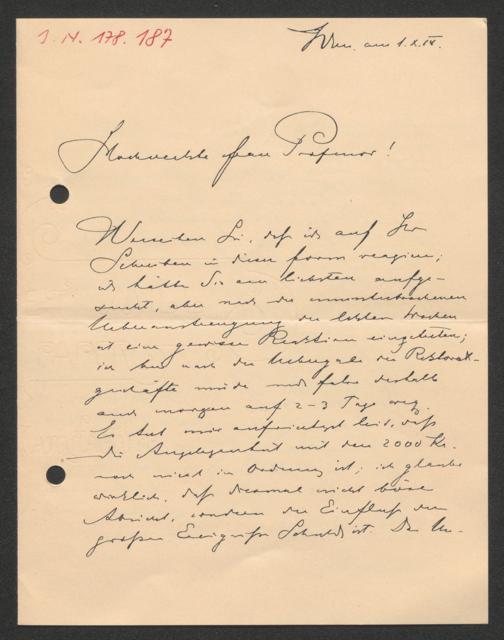 J.N. 178.187
Wien, am 1.X.14.
Hochverehrte Frau Professor!
Verzeihen Sie, daß ich auf Ihr
Schreiben in dieser Form reagiere;
ich hätte Sie am liebsten aufge-
sucht, aber nach der ununterbrochenen
Ueberanstrengung der letzten Wochen
ist eine gewisse Reaktion eingetreten;
ich bin nach der Uebergabe der Rektorats-
geschäfte müde und fahre deshalb
auch morgen auf 2-3 Tage weg.
Es tut mir aufrichtigst leid, daß
die Angelegenheit mit den 2000 Kr.
noch nicht in Ordnung ist; ich glaube
wirklich, daß diesmal nicht böse
Absicht, sondern der Einfluß der
großen Ereignisse Schuld ist. Der Un-